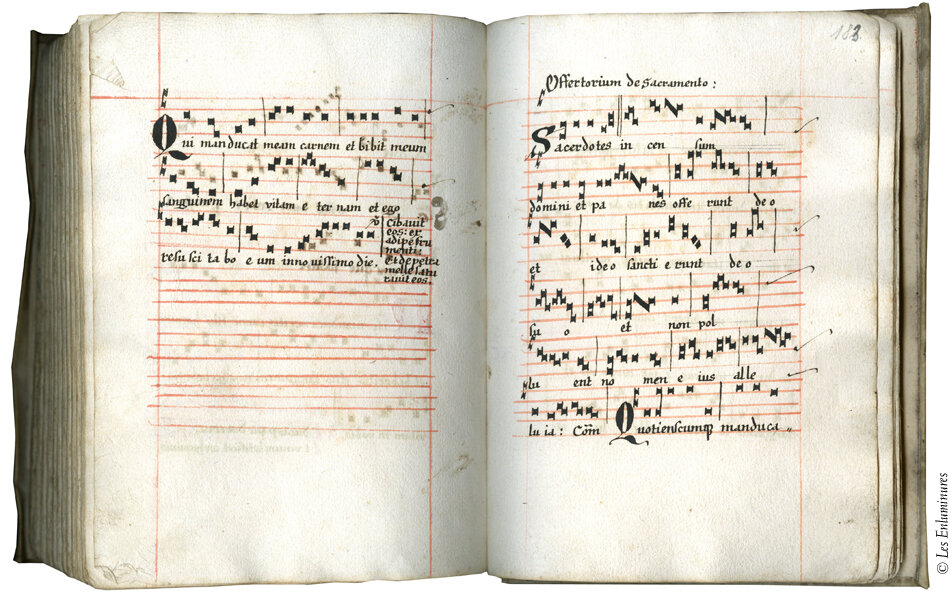 Qui manducat meam carnem et bibit meum
sanguinem habet vitam e ter nam et ego
resu sci ta bo e um in no uissimo die.
℣ Cibauit
eos: ex
adipe fru
menti:
Et de petra
melle satu
rauit eos.
183
Offertorium de Sacramento:
Sacerdotes in cen sum
domini et pa nes offe runt de o
et ide o sancti e runt de o
su o et non pol
lu ent no men e ius alle
lu ia: Com̃ Quotienscumq manduca
© Les Enluminures